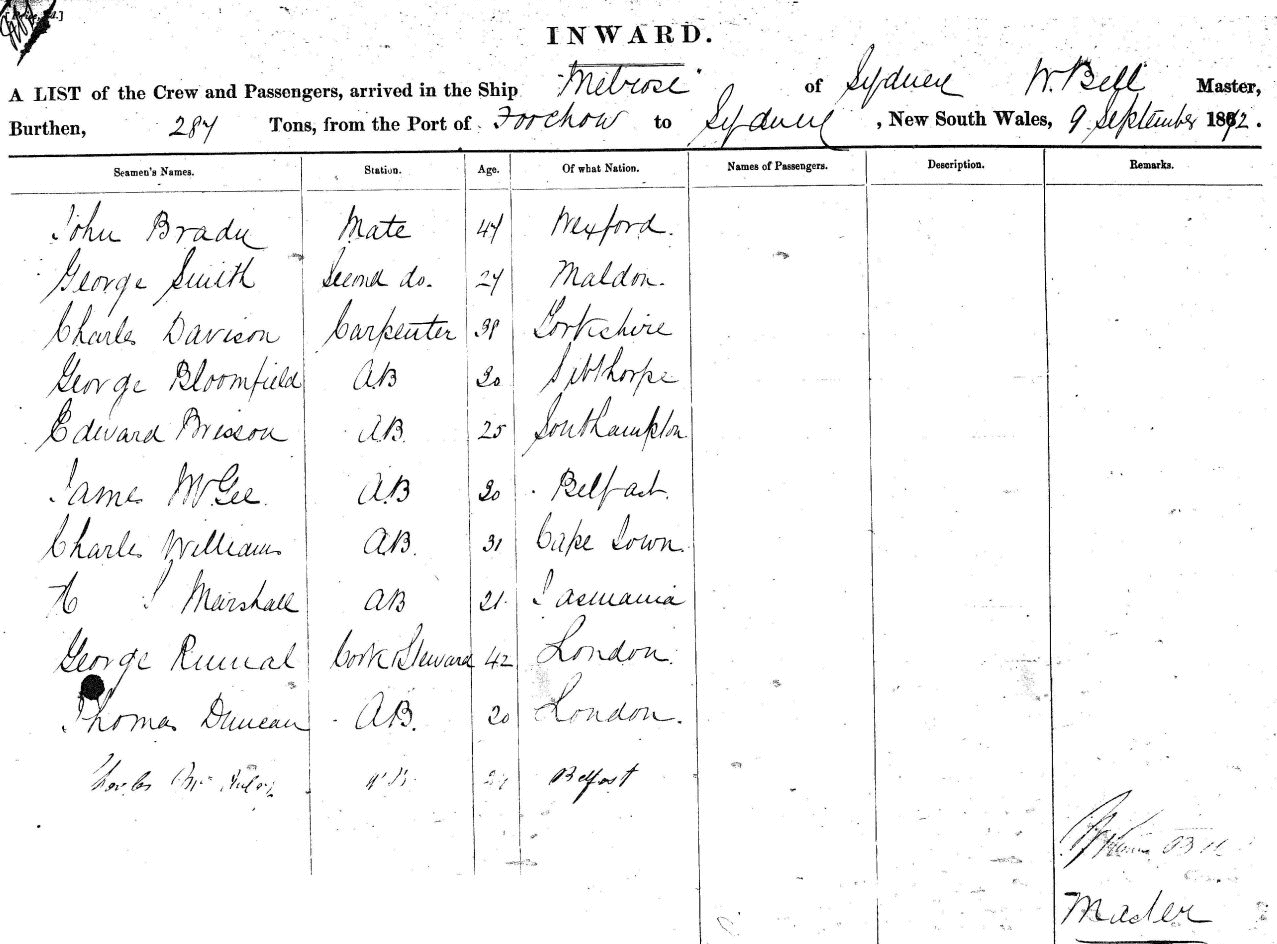 INWARD.
A LIST of the Crew and Passengers, arrived in the Ship "Melrose" of Sydney W. Bell Master,
Burthen, 287 Tons, from the Port of Foochow to Sydney, New South Wales, 9 September 1872.
Seamen's Names. Station. Age. Of what Nation. Names of Passengers. Description. Remarks.
John Brady Mate 47 Wexford.
George Smith Second do. 27 Maldon.
Charles Davison Carpenter 38 Yorkshire
George Bloomfield AB 20 Sibthorpe
Edward Brisson AB. 25 Southampton
James McGee AB 20 Belfast.
Charles Williams AB. 31 Cape Town.
Marshall AB 21. Tasmania
George Cook & Steward 42 London.
Thomas Duncan AB. 20 London.
Charles Belfast
Bell
Master